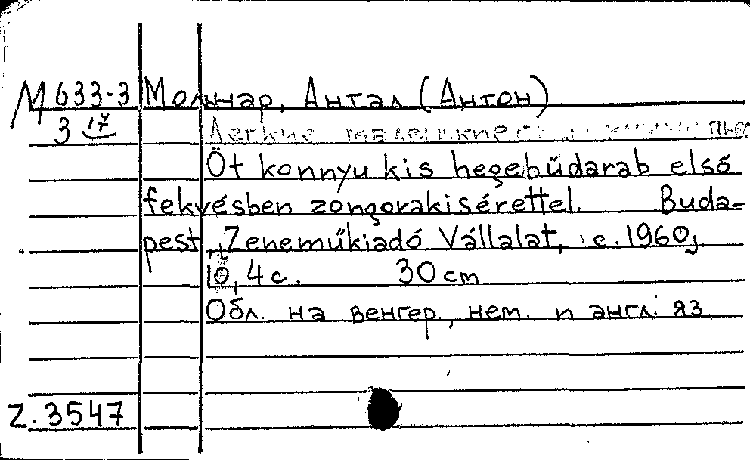 М 633-3 Молнар, Антал (Антон)
3 17
Легкие маленькие
Öt konnyu kis hegebűdarab első
fekvésben zongorakisérettel. Buda-
pest, Zeneműkiadó Vállalat, c. 1960,
10, 4 c. 30 cm
Обл. на венгер., нем. и англ. яз
Z. 3547